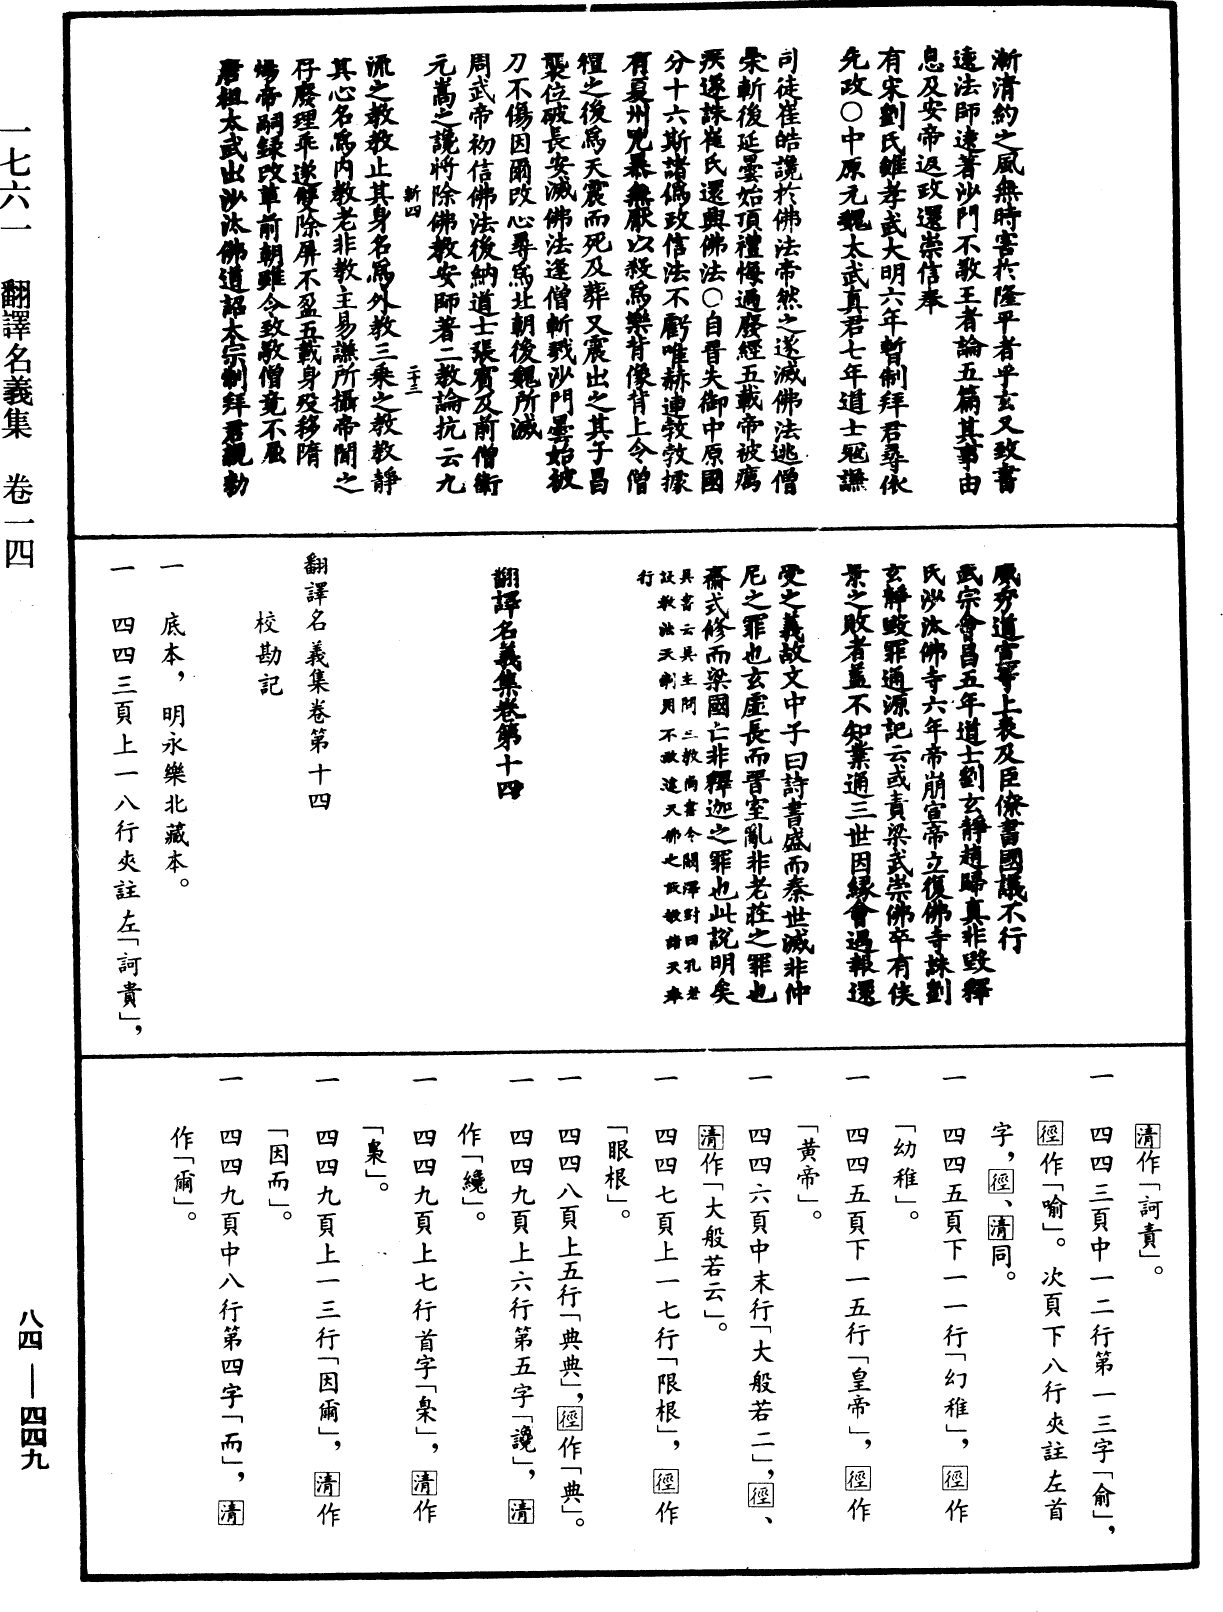 一七六一　翻譯名義集　卷一四
漸清約之風無時害於隆平者乎玄又致書
遠法師遠著沙門不敬王者論五篇其事由
息及安帝返政還崇信奉
有宋劉氏雖孝武大明六年暫制拜君尋依
先政○中原元魏太武真君七年道士寇謙
司徒崔皓讒於佛法帝然之遂滅佛法逃僧
梟斬後延曇始頂禮悔過廢經五載帝被癘
疾遂誅崔氏還興佛法○自晉失御中原國
分十六斯諸偽政信法不虧唯赫連敦敦據
有夏州兇暴無厭以殺為樂背像背上令僧
禮之後為天震而死及葬又震出之其子昌
襲位破長安滅佛法逢僧斬戮沙門曇始被
刀不傷因爾改心尋為北朝後魏所滅
周武帝初信佛法後納道士張賓及前僧衛
元嵩之讒將除佛教安師著二教論抗云九
斬四　二十三
流之教教止其身名為外教三乘之教教靜
其心名為內教老非教主易謙所攝帝聞之
存廢理乖遂雙除屏不盈五載身歿移隋
煬帝嗣錄改革前朝雖令致敬僧竟不屈
唐祖太武出沙汰佛道詔太宗制拜君親勅
威秀道宣等上表及臣僚書國議不行
武宗會昌五年道士劉玄靜趙歸真非毀釋
氏沙汰佛寺六年帝崩宣帝立復佛寺誅劉
玄靜毀罪通源記云或責梁武崇佛卒有侯
景之敗者蓋不知業通三世因緣會遇報還
受之義故文中子曰詩書盛而秦世滅非仲
尼之罪也玄虛長而晉室亂非老莊之罪也
齋戒修而梁國亡非釋迦之罪也此說明矣
吳書云吳主問三教尚書令闞澤對曰孔老
設教法天制用不敢違天佛之設教諸天奉
行
翻譯名義集卷第十四
翻譯名義集卷第十四
校勘記
一　底本，明永樂北藏本。
一　四四三頁上一八行夾註左「訶貴」，
清作「訶責」。
一　四四三頁中一二行第一三字「俞」，
徑作「喻」。次頁下八行夾註左首
字，徑、清同。
一　四四五頁下一一行「幻稚」，徑作
「幼稚」。
一　四四五頁下一五行「皇帝」，徑作
「黃帝」。
一　四四六頁中末行「大般若二」，徑、
清作「大般若云」。
一　四四七頁上一七行「限根」，徑作
「眼根」。
一　四四八頁上五行「典典」，徑作「典」。
一　四四九頁上六行第五字「讒」，清
作「纔」。
一　四四九頁上七行首字「梟」，清作
「梟」。
一　四四九頁上一三行「因爾」，清作
「因而」。
一　四四九頁中八行第四字「而」，清
作「爾」。
八四—四四九